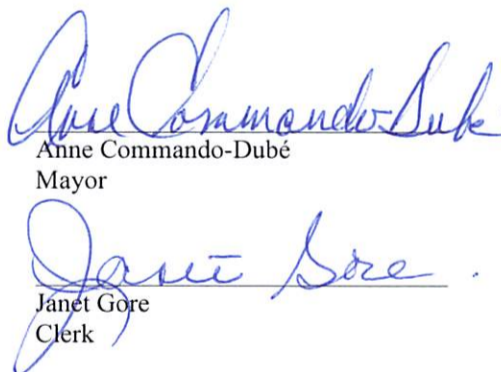 Anne Commando-Dubé
Anne Commando-Dubé
Mayor
Janet Gore
Janet Gore
Clerk